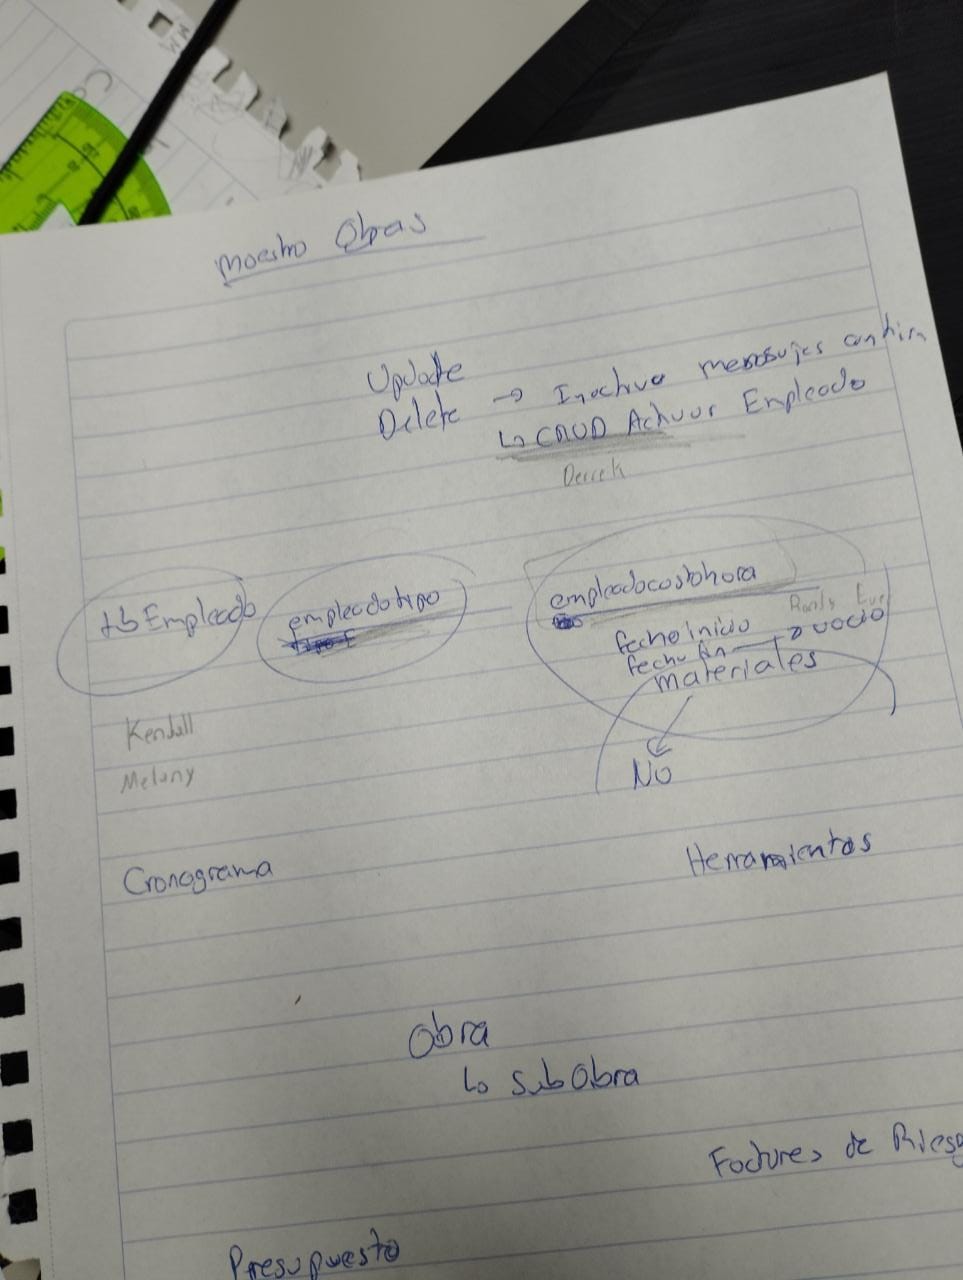 Maestro Obras
Update
Delete → Inactivo mensajes confirm
↳ CRUD Activar Empleado
Derrek
tbEmpleado
empleadotipo
empleadocostohora
fechainicio
fecha fin → vacio
materiales
NO
Kendall
Melany
Cronograma
Herramientas
Obra
↳ SubObra
Factores de Riesg
Presupuesto